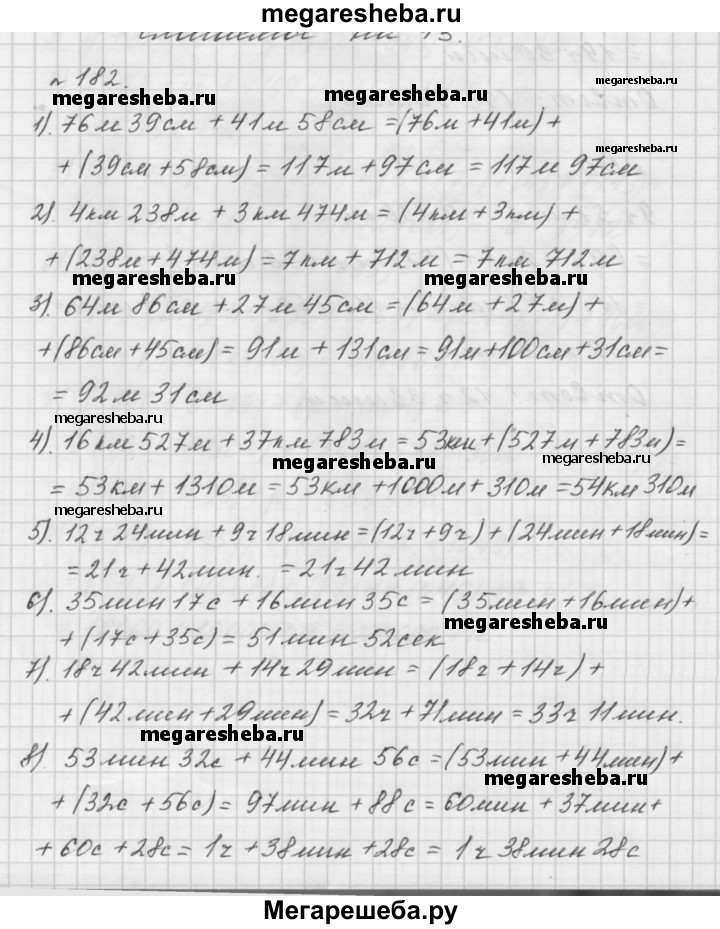 megaresheba.ru
на 13.
№ 182.
megaresheba.ru megaresheba.ru megaresheba.ru
1). 76м 39см + 41м 58см = (76м + 41м) +
megaresheba.ru
+ (39см + 58см) = 117м + 97см = 117м 97см
2). 4км 238м + 3км 474м = (4км + 3км) +
+ (238м + 474м) = 7км + 712м = 7км 712м
megaresheba.ru megaresheba.ru
3). 64м 86см + 27м 45см = (64м + 27м) +
+ (86см + 45см) = 91м + 131см = 91м + 100см + 31см =
= 92м 31см
megaresheba.ru
4). 16км 527м + 37км 783м = 53км + (527м + 783м) =
megaresheba.ru megaresheba.ru
= 53км + 1310м = 53км + 1000м + 310м = 54км 310м
megaresheba.ru
5). 12ч 24мин + 9ч 18мин = (12ч + 9ч) + (24мин + 18мин) =
= 21ч + 42мин. = 21ч 42мин
6). 35мин 17с + 16мин 35с = (35мин + 16мин) +
megaresheba.ru
+ (17с + 35с) = 51мин 52сек
7). 18ч 42мин + 14ч 29мин = (18ч + 14ч) +
+ (42мин + 29мин) = 32ч + 71мин = 33ч 11мин.
megaresheba.ru
8). 53мин 32с + 44мин 56с = (53мин + 44мин) +
megaresheba.ru
+ (32с + 56с) = 97мин + 88с = 60мин + 37мин +
+ 60с + 28с = 1ч + 38мин + 28с = 1ч 38мин 28с
Мегарешеба.ру